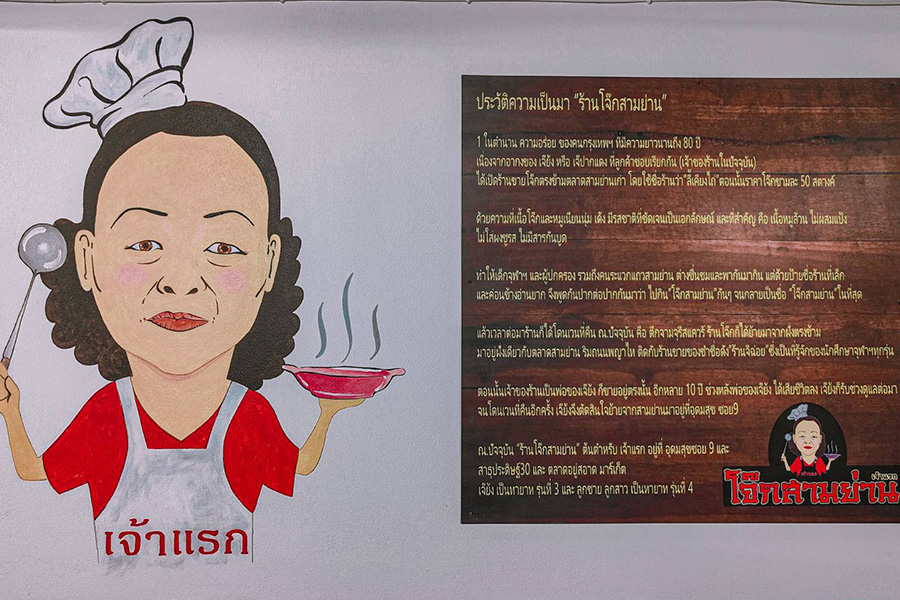 ประวัติความเป็นมา "ร้านโจ๊กสามย่าน"
1 ในตำนาน ความอร่อย ของคนกรุงเทพฯ ที่มีความยาวนานถึง 80 ปี
เนื่องจากอากงของ เจ๊ยัง หรือ เจ๊ปากแดง ที่ลูกค้าชอบเรียกกัน (เจ้าของร้านในปัจจุบัน)
ได้เปิดร้านขายโจ๊กตรงข้ามตลาดสามย่านเก่า โดยใช้ชื่อร้านว่า"ลี้เคี้ยงไถ่"ตอนนั้นราคาโจ๊กชามละ 50 สตางค์
ด้วยความที่เนื้อโจ๊กและหมูเนียนนุ่ม เด้ง มีรสชาติที่ชัดเจนเป็นเอกลักษณ์ และที่สำคัญ คือ เนื้อหมูล้วน ไม่ผสมแป้ง
ไม่ใส่ผงชูรส ไม่มีสารกันบูด
ทำให้เด็กจุฬาฯ และผู้ปกครอง รวมถึงคนระแวกแถวสามย่าน ต่างชื่นชมและพากันมากิน แต่ด้วยป้ายชื่อร้านที่เล็ก
และค่อนข้างอ่านยาก จึงพูดกันปากต่อปากกันมาว่า ไปกิน"โจ๊กสามย่าน"กันๆ จนกลายเป็นชื่อ "โจ๊กสามย่าน"ในที่สุด
แล้วเวลาต่อมาร้านก็ได้โดนเวนที่คืน ณ.ปัจจุบัน คือ ตึกจามจุรีสแควร์ ร้านโจ๊กก็ได้ย้ายมาจากฝั่งตรงข้าม
มาอยู่ฝั่งเดียวกับตลาดสามย่าน ริมถนนพญาไท ติดกับร้านขายของชำชื่อดัง"ร้านจีฉ่อย"ซึ่งเป็นที่รู้จักของนักศึกษาจุฬาฯทุกรุ่น
ตอนนั้นเจ้าของร้านเป็นพ่อของเจ๊ยัง ก็ขายอยู่ตรงนั้น อีกหลาย 10 ปี ช่วงหลังพ่อของเจ๊ยัง ได้เสียชีวิตลง เจ๊ยังก็รับช่วงดูแลต่อมา
จนโดนเวนที่คืนอีกครั้ง เจ๊ยังจึงตัดสินใจย้ายจากสามย่านมาอยู่ที่อุดมสุข ซอย9
ณ.ปัจจุบัน "ร้านโจ๊กสามย่าน" ต้นตำหรับ เจ้าแรก อยู่ที่ อุดมสุขซอย 9 และ
สาธุประดิษฐ์30 และ ตลาดอยู่สอาด มาร์เก็ต
เจ๊ยัง เป็นทายาท รุ่นที่ 3 และ ลูกชาย ลูกสาว เป็นทายาท รุ่นที่ 4
เจ้าแรก
เจ้าแรก
โจ๊กสามย่าน
เจ้าแรก